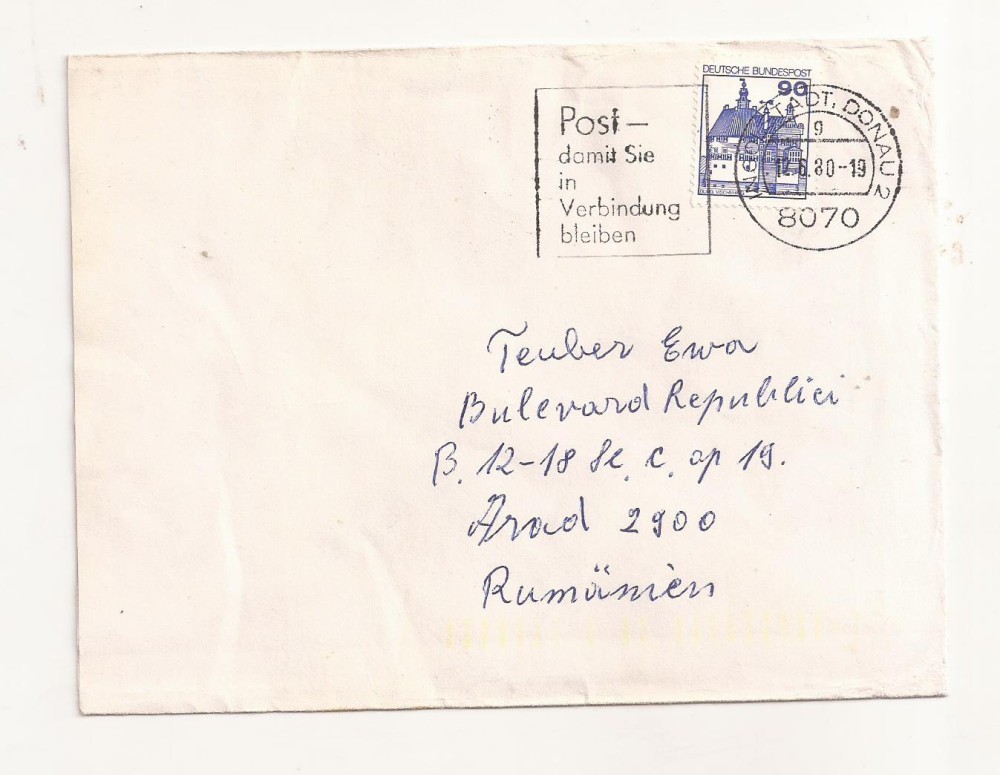 DEUTSCHE BUNDESPOST
90
Post –
damit Sie
in
Verbindung
bleiben
INGOLSTADT, DONAU 2
g
6.80-19
8070
Teuber Ewa
Bulevard Republici
B. 12-18 Sc. C. ap 19.
Arad 2900
Rumänien